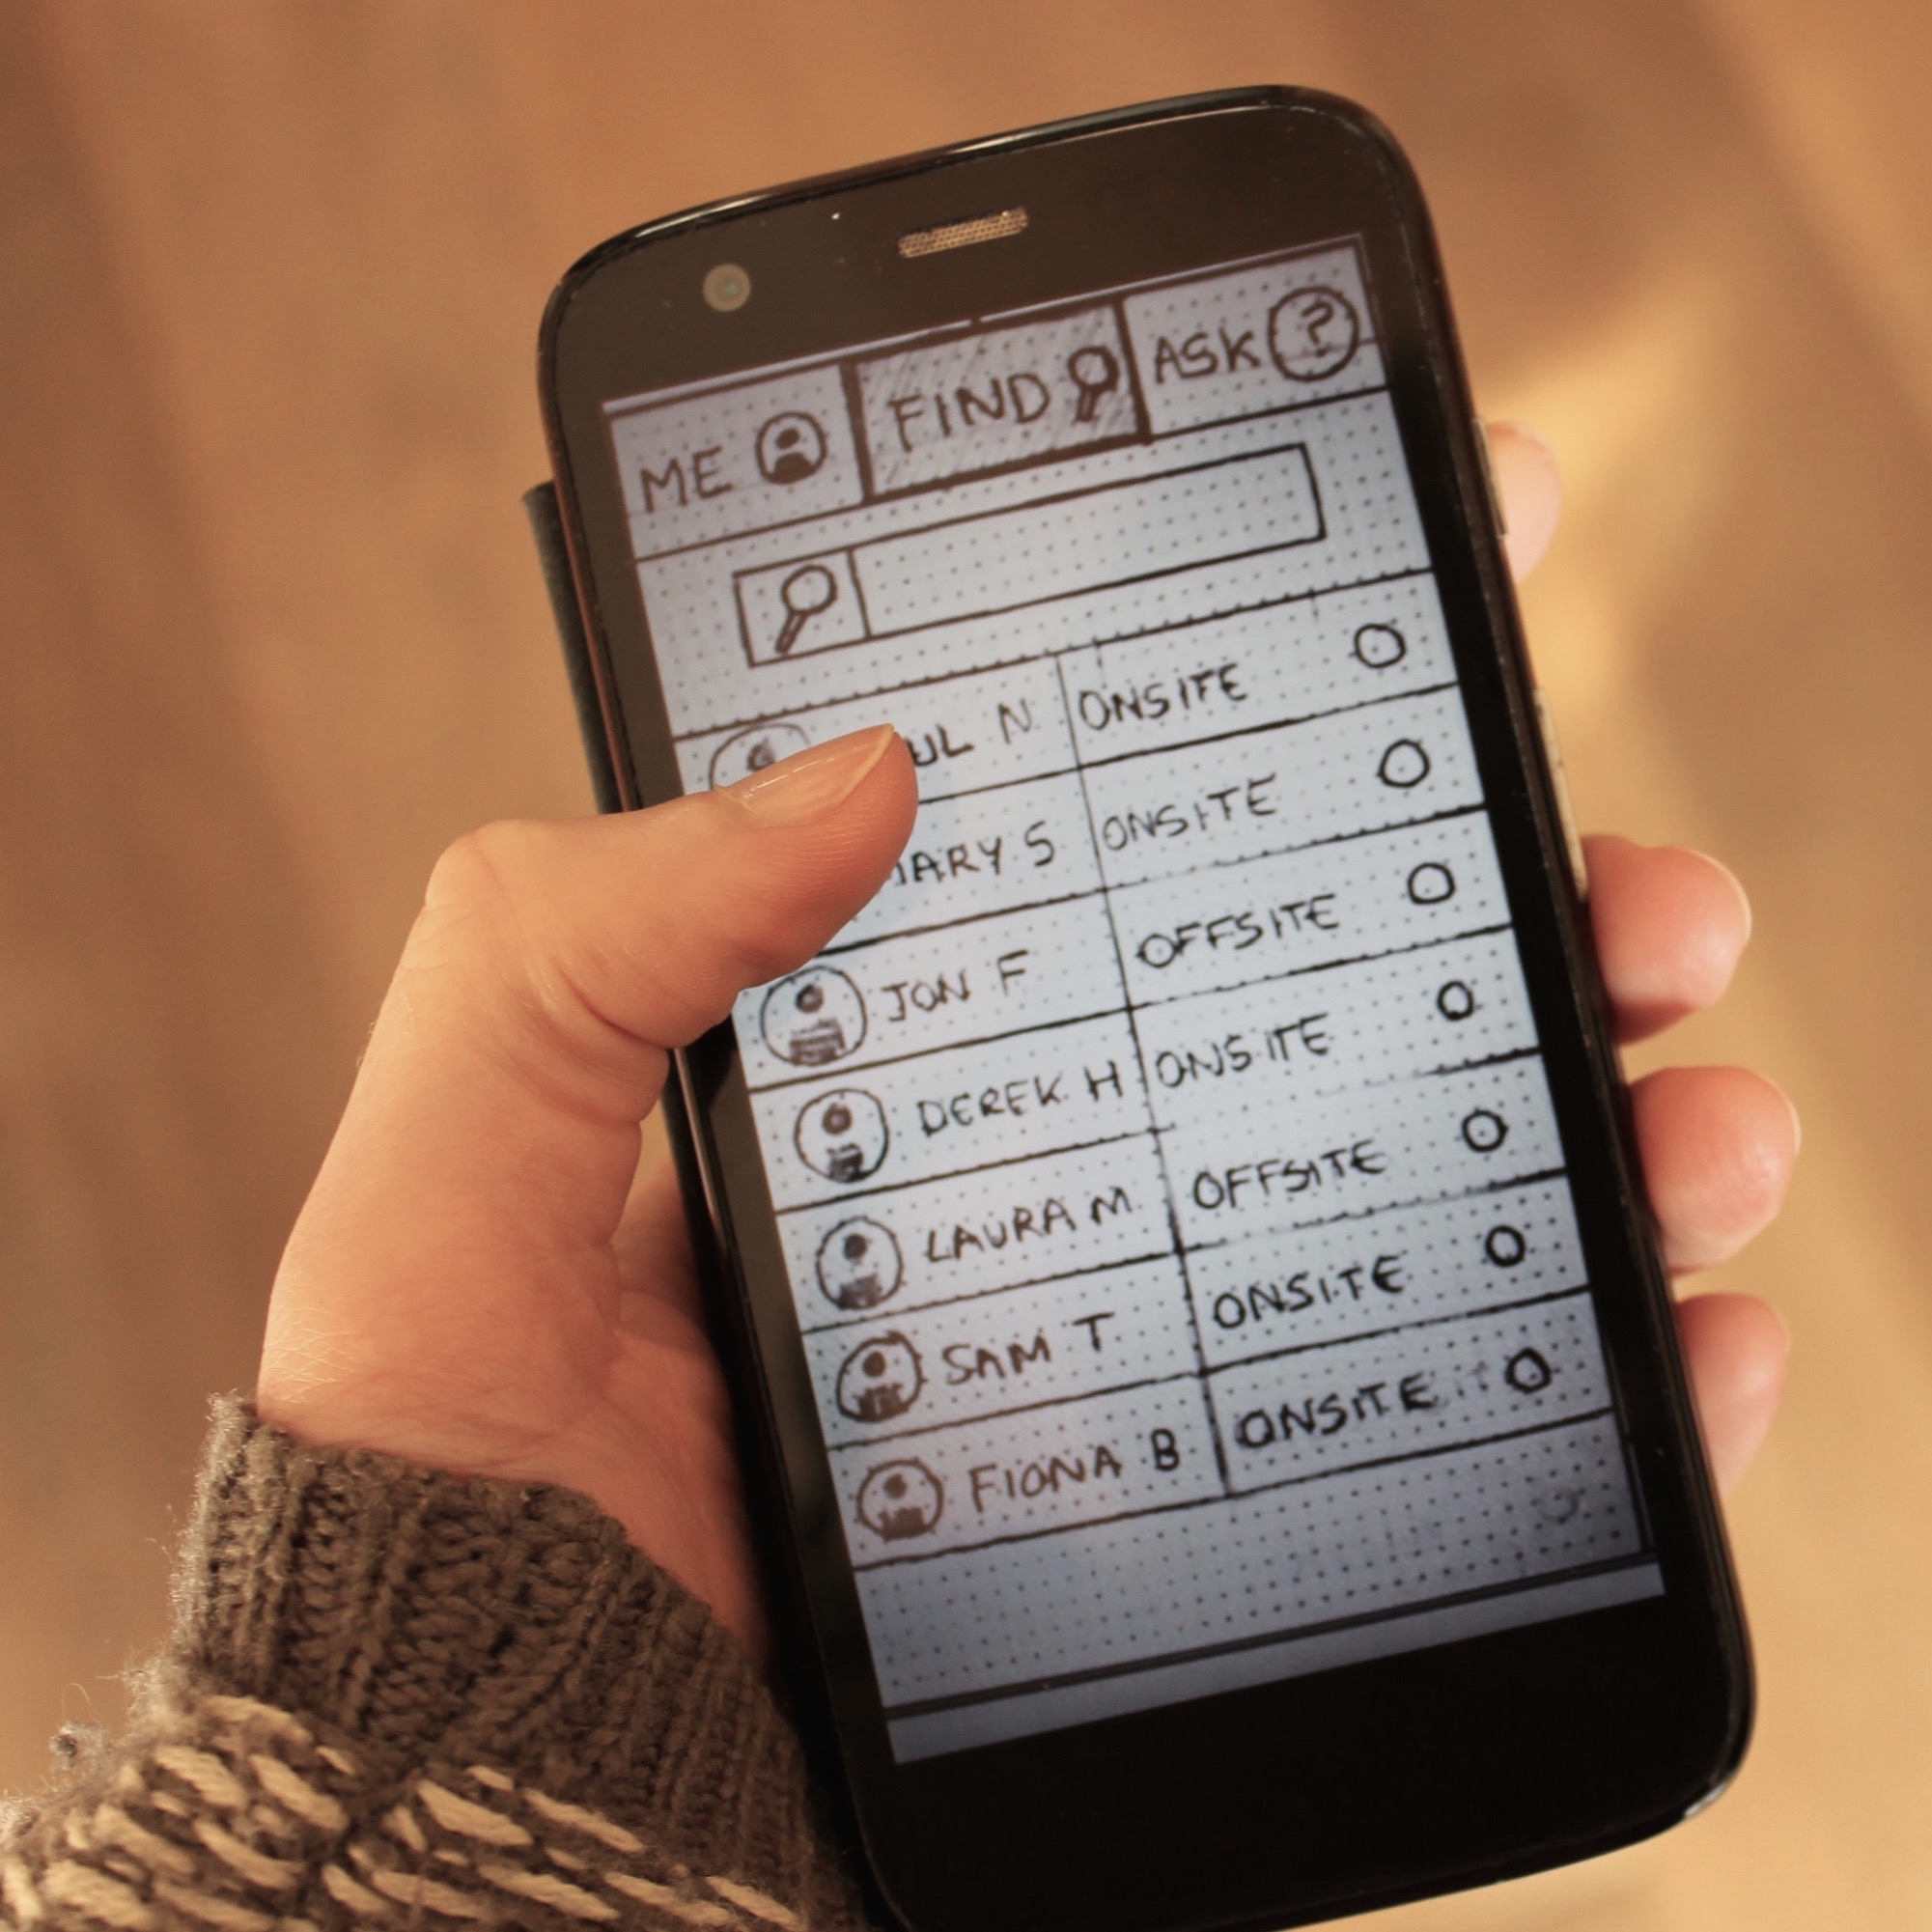 ME FIND ASK ?
UL N ONSITE
MARY S ONSITE
JON F OFFSITE
DEREK H ONSITE
LAURA M OFFSITE
SAM T ONSITE
FIONA B ONSITE